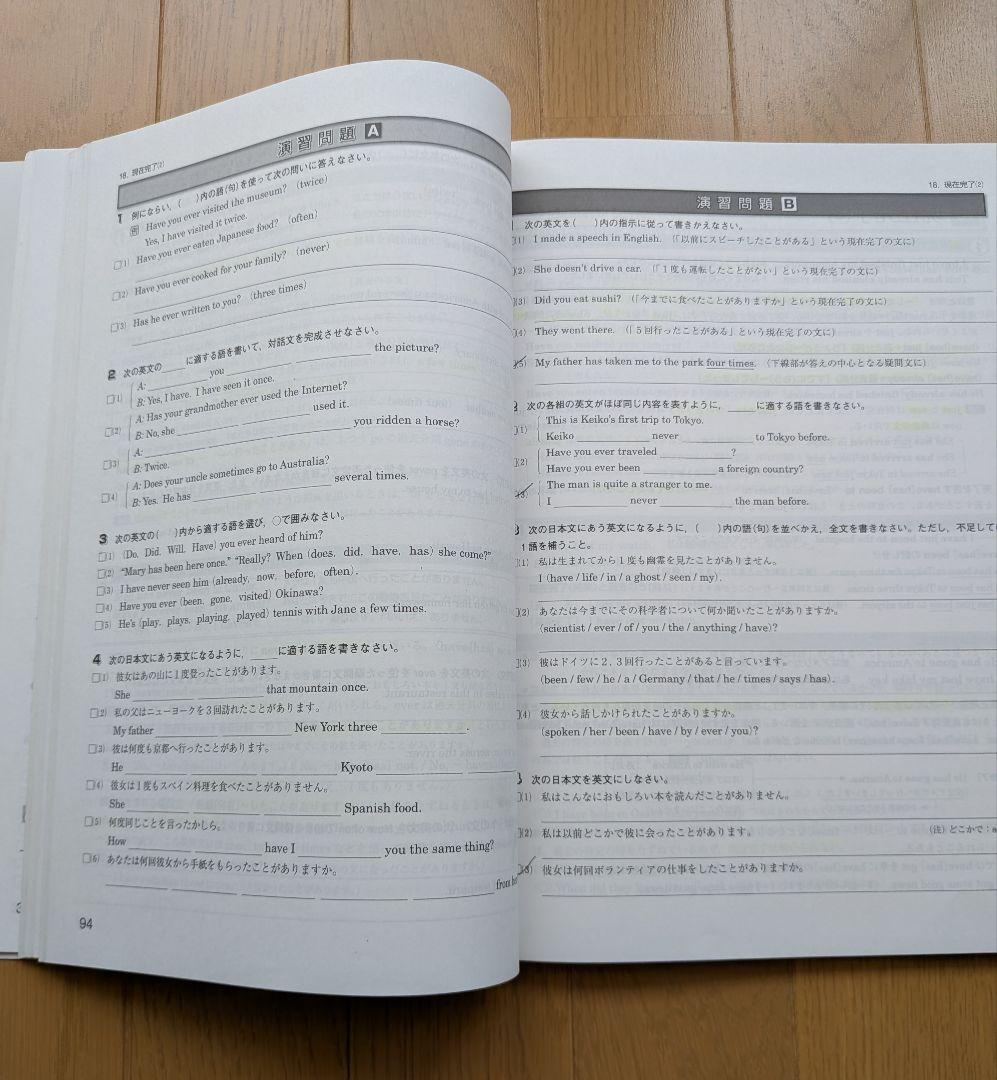 18. 現在完了(2)
演習問題 A
1 例にならい,( )内の語(句)を使って次の問いに答えなさい。
例 Have you ever visited the museum? (twice)
Yes, I have visited it twice.
□(1) Have you ever eaten Japanese food? (often)
□(2) Have you ever cooked for your family? (never)
□(3) Has he ever written to you? (three times)
2 次の英文の____に適する語を書いて,対話文を完成させなさい。
□(1) A: ____ you ____ the picture?
B: Yes, I have. I have seen it once.
□(2) A: Has your grandmother ever used the Internet?
B: No, she ____ ____ used it.
□(3) A: ____ ____ ____ you ridden a horse?
B: Twice.
□(4) A: Does your uncle sometimes go to Australia?
B: Yes. He has ____ ____ several times.
3 次の英文の( )内から適する語を選び,○で囲みなさい。
□(1) (Do, Did, Will, Have) you ever heard of him?
□(2) “Mary has been here once.” “Really? When (does, did, have, has) she come?”
□(3) I have never seen him (already, now, before, often).
□(4) Have you ever (been, gone, visited) Okinawa?
□(5) He's (play, plays, playing, played) tennis with Jane a few times.
4 次の日本文にあう英文になるように,____に適する語を書きなさい。
□(1) 彼女はあの山に1度登ったことがあります。
She ____ ____ that mountain once.
□(2) 私の父はニューヨークを3回訪れたことがあります。
My father ____ ____ New York three ____.
□(3) 彼は何度も京都へ行ったことがあります。
He ____ ____ ____ Kyoto ____ ____
□(4) 彼女は1度もスペイン料理を食べたことがありません。
She ____ ____ ____ Spanish food.
□(5) 何度同じことを言ったかしら。
How ____ ____ have I ____ you the same thing?
□(6) あなたは何回彼女から手紙をもらったことがありますか。
____ ____ ____ ____ ____ from her
94
18. 現在完了(2)
演習問題 B
次の英文を( )内の指示に従って書きかえなさい。
(1) I made a speech in English. (「以前にスピーチしたことがある」という現在完了の文に)
(2) She doesn't drive a car. (「1度も運転したことがない」という現在完了の文に)
(3) Did you eat sushi? (「今までに食べたことがありますか」という現在完了の文に)
(4) They went there. (「5回行ったことがある」という現在完了の文に)
(5) My father has taken me to the park four times. (下線部が答えの中心となる疑問文に)
次の各組の英文がほぼ同じ内容を表すように,____に適する語を書きなさい。
(1) This is Keiko's first trip to Tokyo.
Keiko ____ never ____ to Tokyo before.
(2) Have you ever traveled ____?
Have you ever been ____ a foreign country?
(3) The man is quite a stranger to me.
I ____ never ____ the man before.
次の日本文にあう英文になるように,( )内の語(句)を並べかえ,全文を書きなさい。ただし,不足して
1語を補うこと。
(1) 私は生まれてから1度も幽霊を見たことがありません。
I (have / life / in / a ghost / seen / my).
(2) あなたは今までにその科学者について何か聞いたことがありますか。
(scientist / ever / of / you / the / anything / have)?
(3) 彼はドイツに2,3回行ったことがあると言っています。
(been / few / he / a / Germany / that / he / times / says / has).
(4) 彼女から話しかけられたことがありますか。
(spoken / her / been / have / by / ever / you)?
次の日本文を英文にしなさい。
(1) 私はこんなにおもしろい本を読んだことがありません。
(2) 私は以前どこかで彼に会ったことがあります。 (注) どこかで:
(3) 彼女は何回ボランティアの仕事をしたことがありますか。